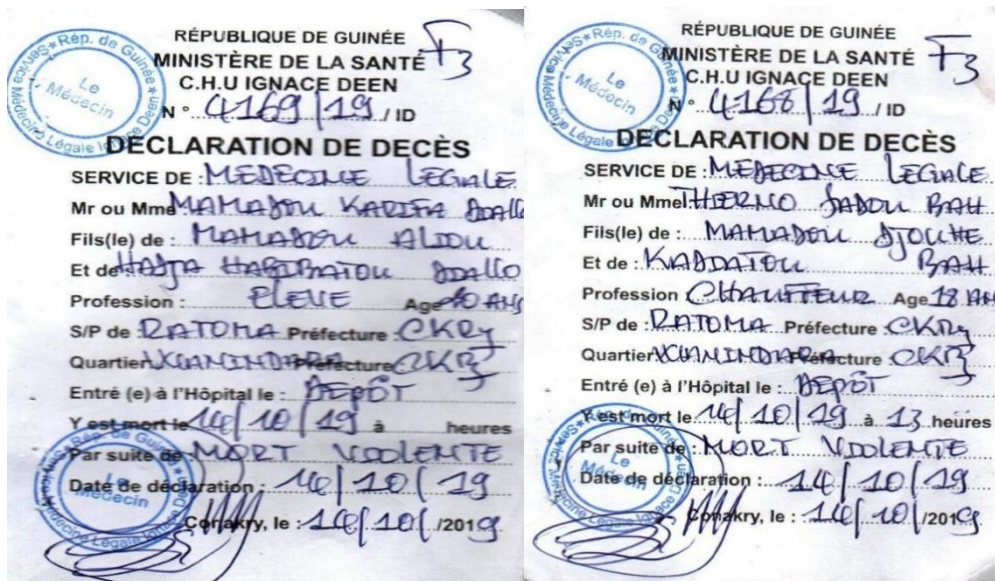 RÉPUBLIQUE DE GUINÉE
F3
MINISTÈRE DE LA SANTÉ
C.H.U IGNACE DEEN
N° 4169/19 / ID
DECLARATION DE DECÈS
SERVICE DE : MEDECINE LEGALE
Mr ou Mme MAMADOU KARIFA DIALLO
Fils(le) de : MAMADOU ALIOU
Et de HADJA HABIBATOU DIALLO
Profession : ELEVE Age 10 ANS
S/P de : RATOMA Préfecture : CKRY
Quartier Préfecture CKRY
Entré (e) à l'Hôpital le : DEPÔT
Y est mort le 14/10/19 à heures
Par suite de : MORT VIOLENTE
Date de déclaration : 14/10/19
Conakry, le : 14/10/2019
Rép. de Guinée
Le Médecin
Service Médecine Légale Ignace Deen
RÉPUBLIQUE DE GUINÉE
F3
MINISTÈRE DE LA SANTÉ
C.H.U IGNACE DEEN
N° 4168/19 / ID
DECLARATION DE DECÈS
SERVICE DE : MEDECINE LEGALE
Mr ou Mme THIERNO SADOU BAH
Fils(le) de : MAMADOU DJOUHE
Et de : KADIATOU BAH
Profession : CHAUFFEUR Age 18 ANS
S/P de : RATOMA Préfecture : CKRY
Quartier Préfecture CKRY
Entré (e) à l'Hôpital le : DEPÔT
Y est mort le 14/10/19 à 13 heures
Par suite de : MORT VIOLENTE
Date de déclaration : 14/10/19
Conakry, le : 14/10/2019
Rép. de Guinée
Le Médecin
Service Médecine Légale Ignace Deen